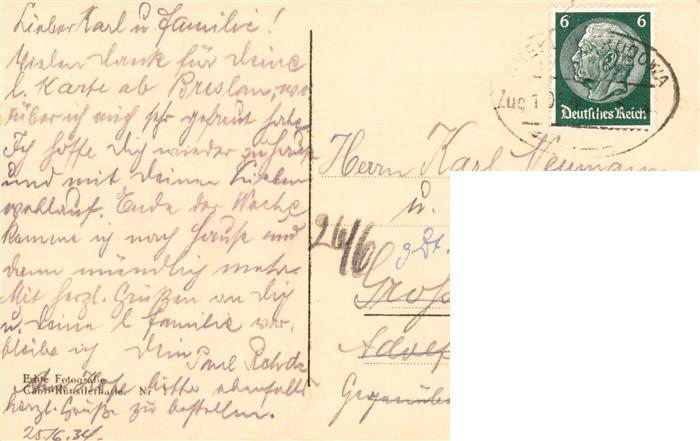 Lieber Karl u Familie!
Vielen Dank für Deine
l. Karte ab Breslau, wo-
rüber ich mich sehr gefreut habe.
Ich hoffe Dich wieder zu Hause
und mit Deinen Lieben
wohlauf. Ende der Woche
komme ich nach Hause und
dann mündlich mehr.
Mit herzl. Grüßen an Dich
u. Deine l Familie ver-
bleibe ich Dein Paul
bitte ebenfalls
herzl. Grüße zu bestellen.
25/6.34.
Echte Fotografie
Nr 1
6 6
Deutsches Reich
UDOWA
Zug 1
Herrn Karl Neumann
u.
26/6
Groß
Adolf
Gegenüber